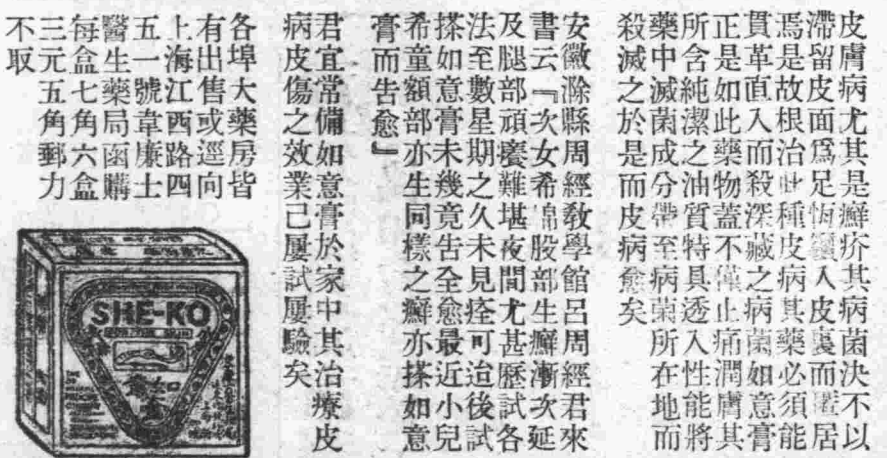 皮膚病尤其是癬疥其病菌決不以
滯留皮面爲足恆竄入皮裏而匿居
焉是故根治此種皮病其藥必須能
貫革直入而殺深藏之病菌如意膏
正是如此藥物蓋不僅止痛潤膚其
所含純潔之油質特具透入性能將
藥中滅菌成分帶至病菌所在地而
殺滅之於是而皮病愈矣
安徽滁縣周經敎學館呂周經君來
書云『次女希綿股部生癬漸次延
及腿部頑癢難堪夜間尤甚歷試各
法至數星期之久未見痊可迨後試
搽如意膏未幾竟吿全愈最近小兒
希童額部亦生同樣之癬亦搽如意
膏而吿愈』
君宜常備如意膏於家中其治療皮
病皮傷之效業已屢試屢驗矣
各埠大藥房皆
有出售或逕向
上海江西路四
五一號韋廉士
醫生藥局函購
每盒七角六盒
三元五角郵力
不取
SHE-KO
如意膏